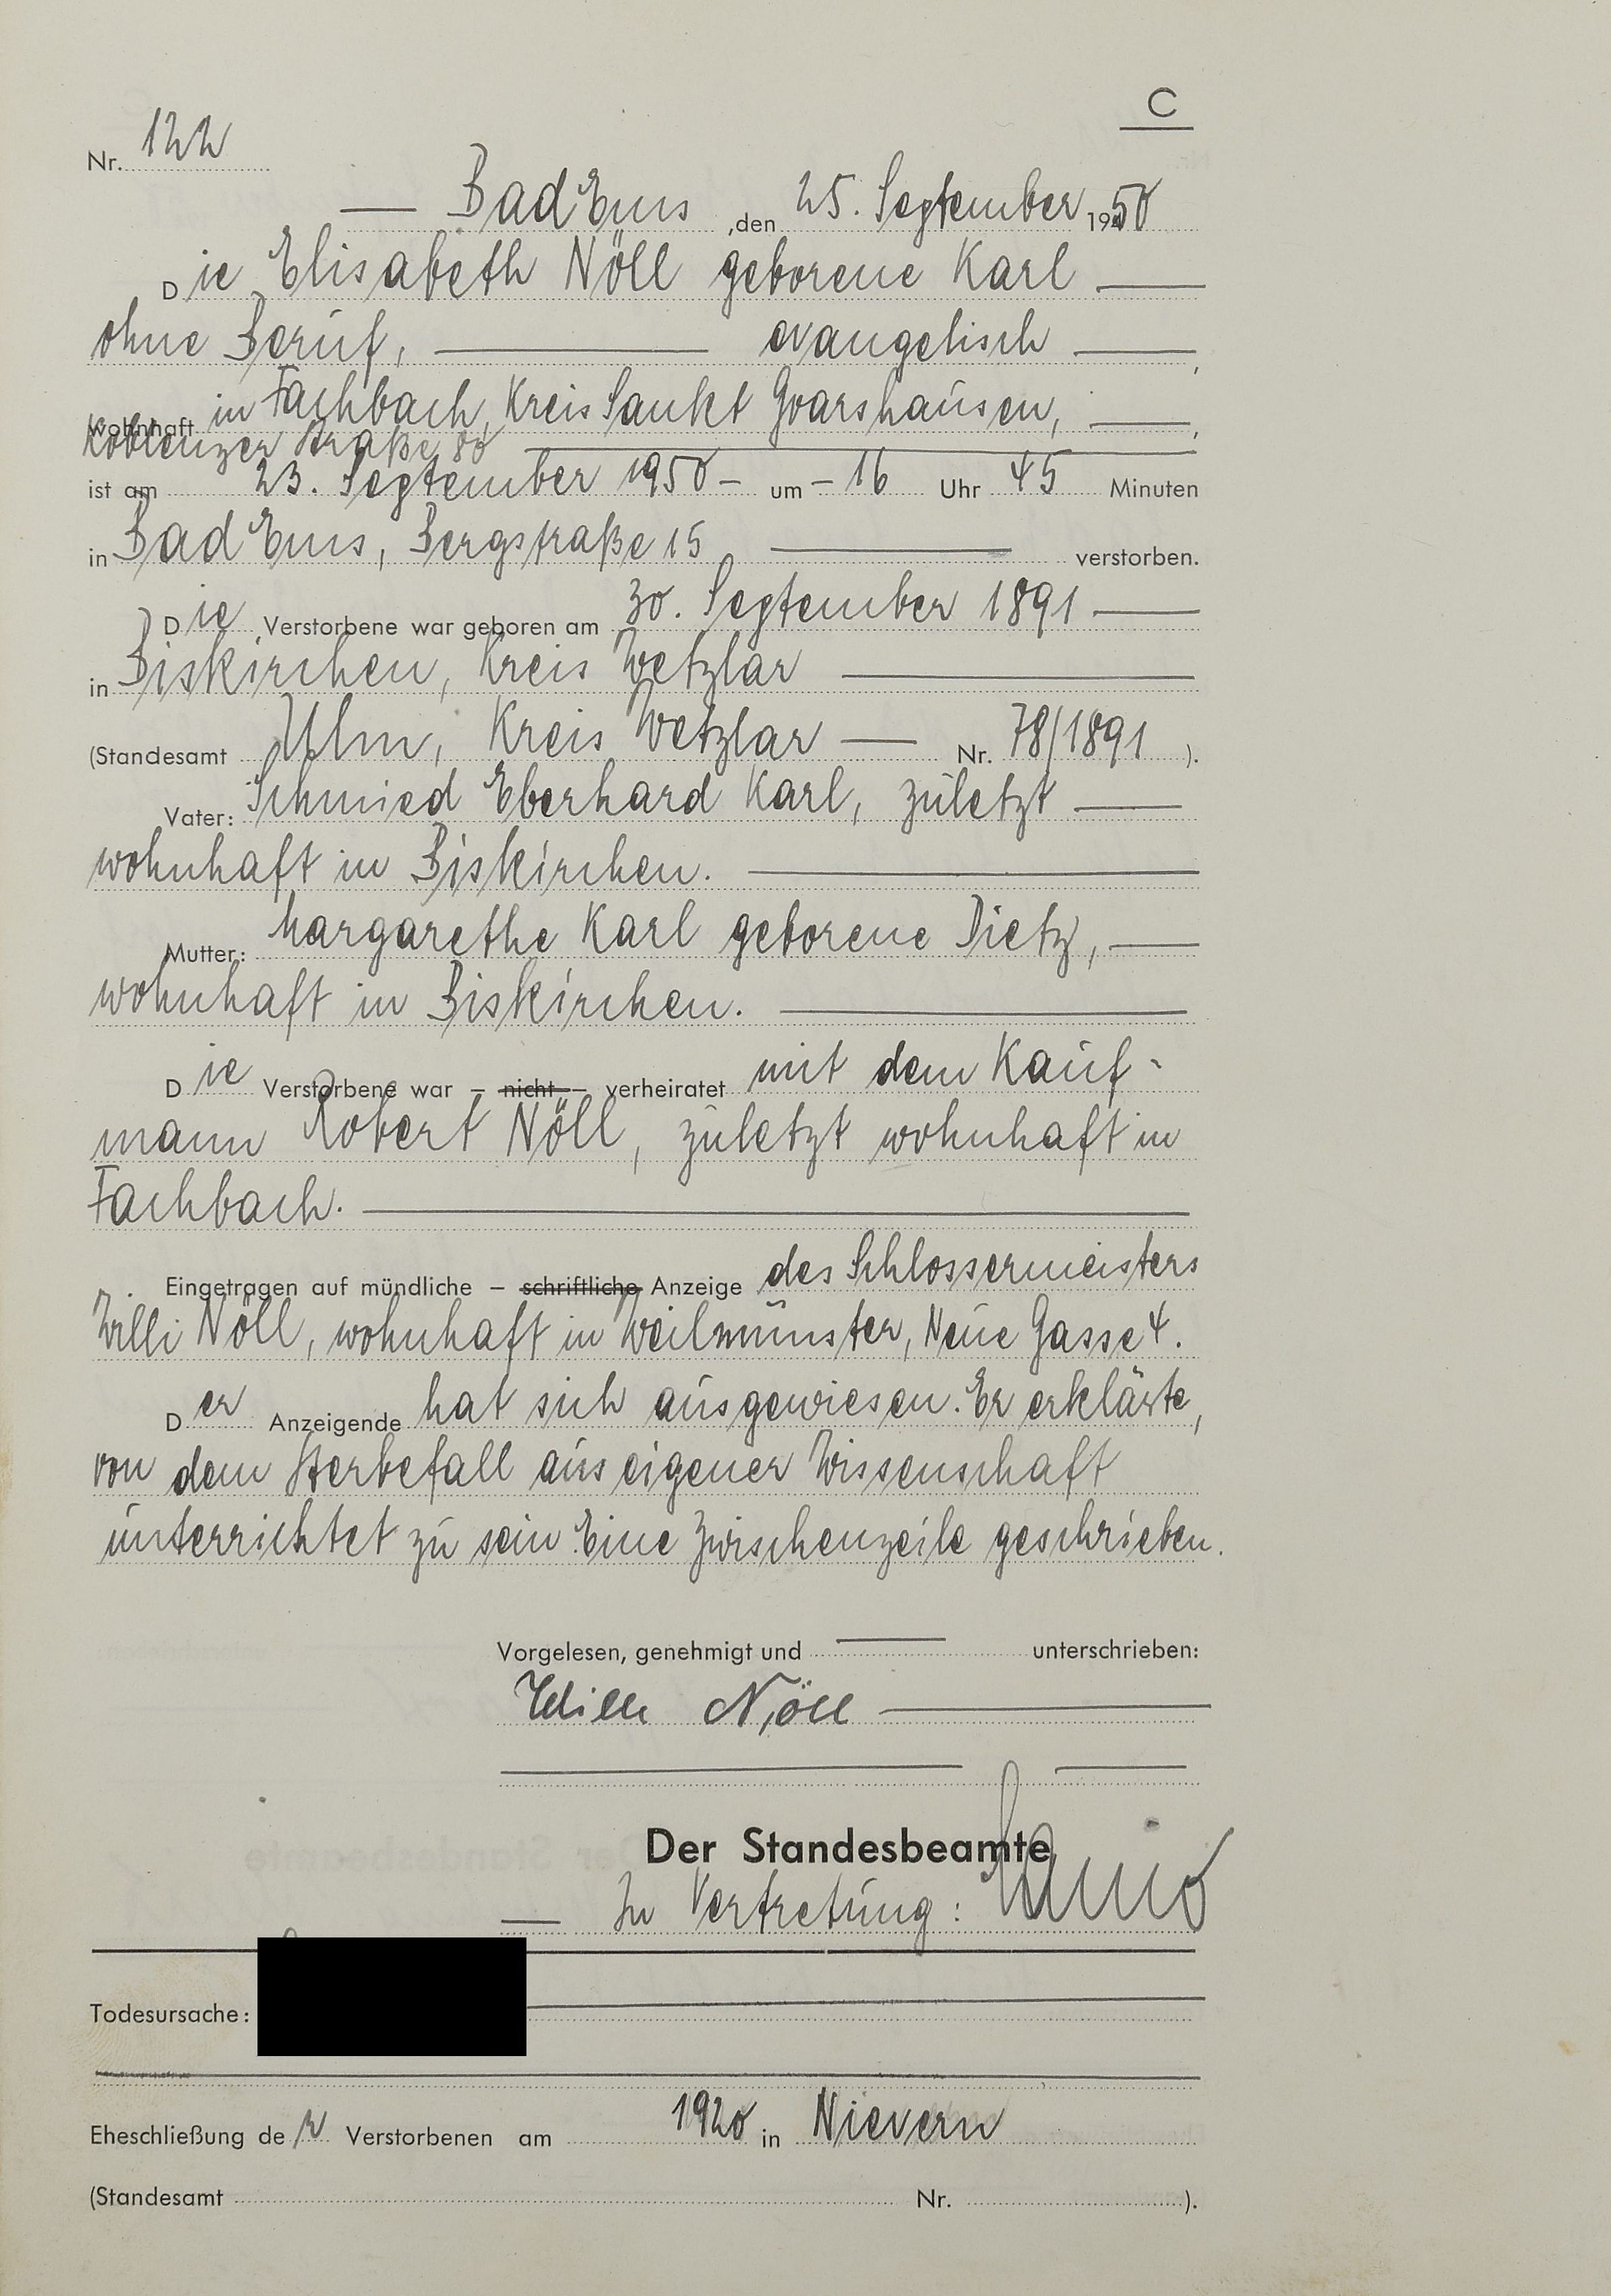 C
Nr. 122
Bad Ems, den 25. September 1950
Die Elisabeth Nöll geborene Karl
ohne Beruf, evangelisch,
wohnhaft in Fachbach, Kreis Sankt Goarshausen,
Koblenzer Straße 80
ist am 23. September 1950 - um - 16 Uhr 45 Minuten
in Bad Ems, Bergstraße 15 verstorben.
Die Verstorbene war geboren am 30. September 1891
in Biskirchen, Kreis Wetzlar
(Standesamt Ulm, Kreis Wetzlar Nr. 78/1891).
Vater: Schmied Eberhard Karl, zuletzt
wohnhaft in Biskirchen.
Mutter: Margarethe Karl geborene Dietz,
wohnhaft in Biskirchen.
Die Verstorbene war - nicht - verheiratet mit dem Kauf-
mann Robert Nöll, zuletzt wohnhaft in
Fachbach.
Eingetragen auf mündliche - schriftliche Anzeige des Schlossermeisters
Willi Nöll, wohnhaft in Weilmünster, Neue Gasse 4.
Der Anzeigende hat sich ausgewiesen. Er erklärte,
von dem Sterbefall aus eigener Wissenschaft
unterrichtet zu sein. Eine Zwischenzeile geschrieben.
Vorgelesen, genehmigt und unterschrieben:
Willi Nöll
Der Standesbeamte
In Vertretung:
Todesursache:
Eheschließung der Verstorbenen am 1920 in Nievern
(Standesamt Nr. ).